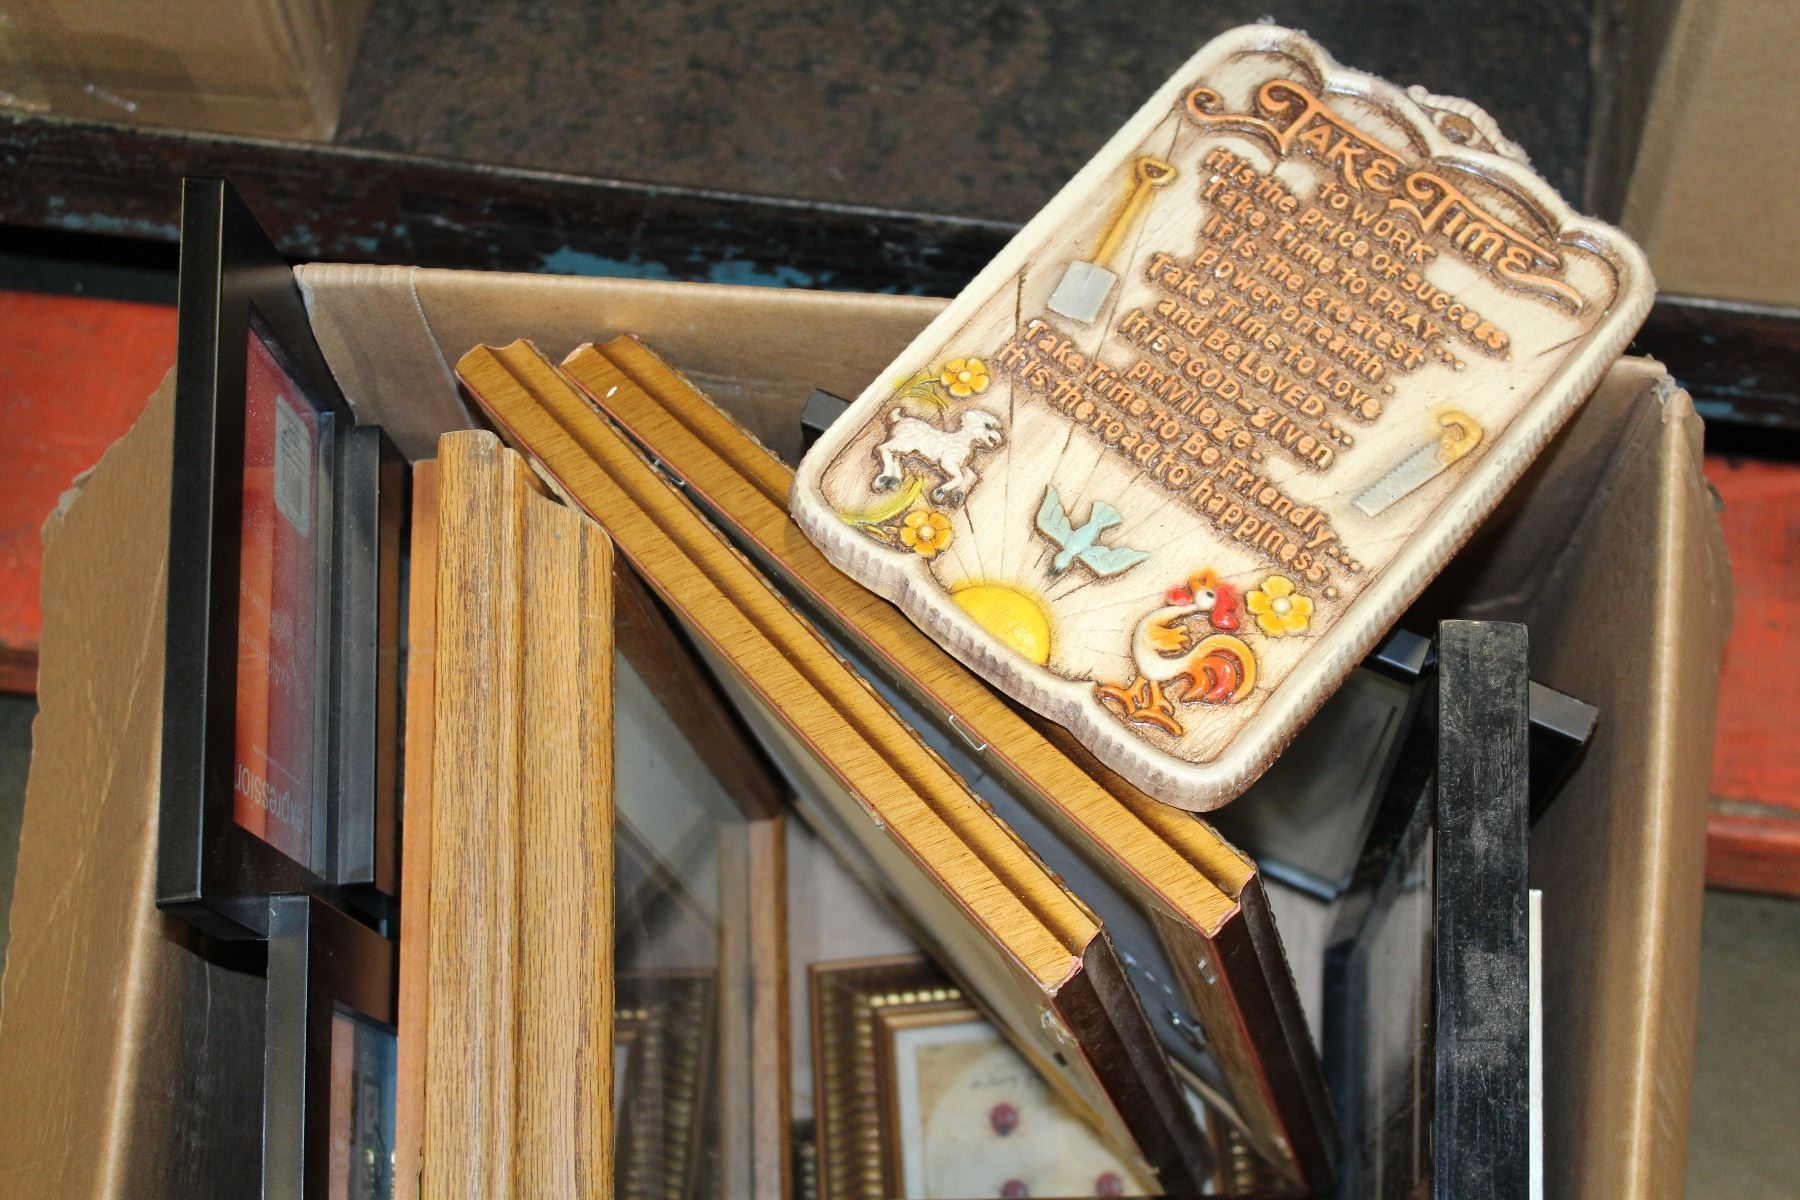 Take Time
to work
it is the price of success
Take Time to PRAY...
It is the greatest
power on earth.
Take Time to Love
and Be LOVED...
it is a GOD-given
privilege.
Take Time to Be Friendly...
it is the road to happiness.
expression